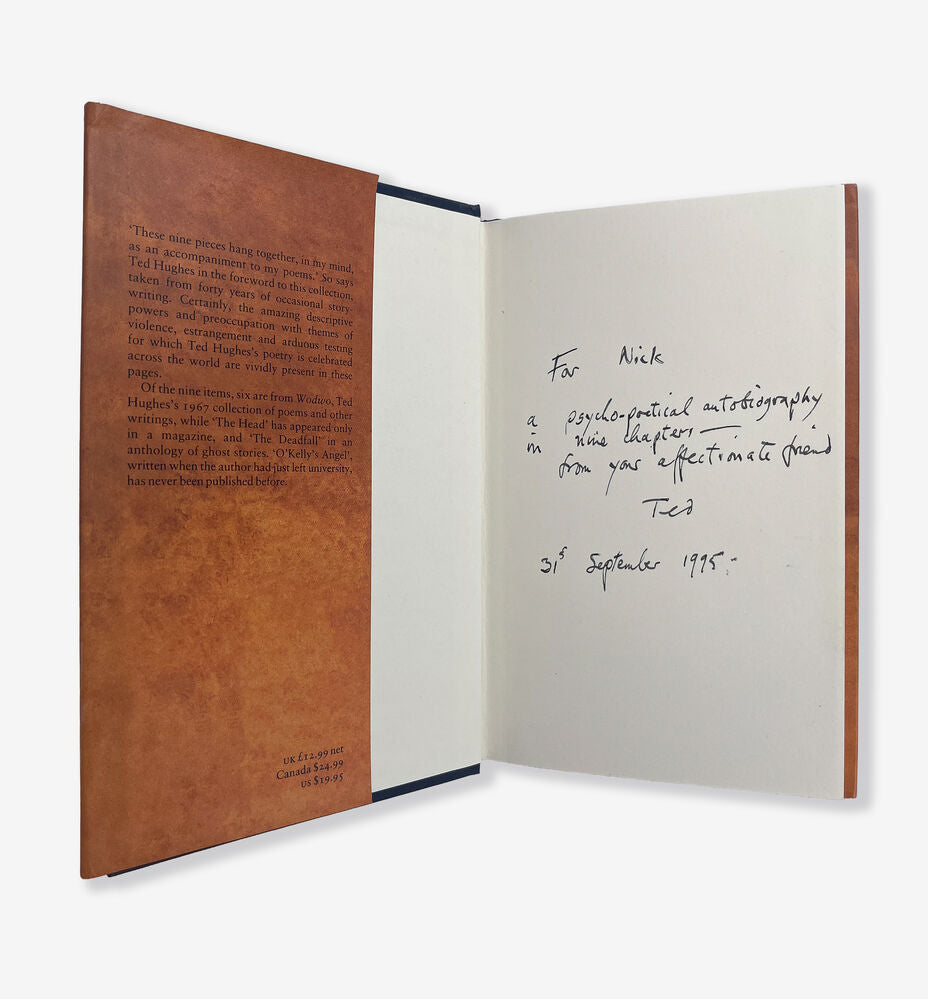 ‘These nine pieces hang together, in my mind,
as an accompaniment to my poems.’ So says
Ted Hughes in the foreword to this collection,
taken from forty years of occasional story-
writing. Certainly, the amazing descriptive
powers and preoccupation with themes of
violence, estrangement and arduous testing
for which Ted Hughes's poetry is celebrated
across the world are vividly present in these
pages.
Of the nine items, six are from Wodwo, Ted
Hughes's 1967 collection of poems and other
writings, while ‘The Head’ has appeared only
in a magazine, and ‘The Deadfall’ in an
anthology of ghost stories. ‘O'Kelly's Angel’,
written when the author had just left university,
has never been published before.
UK £12.99 net
Canada $24.99
US $19.95
For Nick
a psycho-poetical autobiography
in nine chapters —
from your affectionate friend
Ted
31s September 1995.-